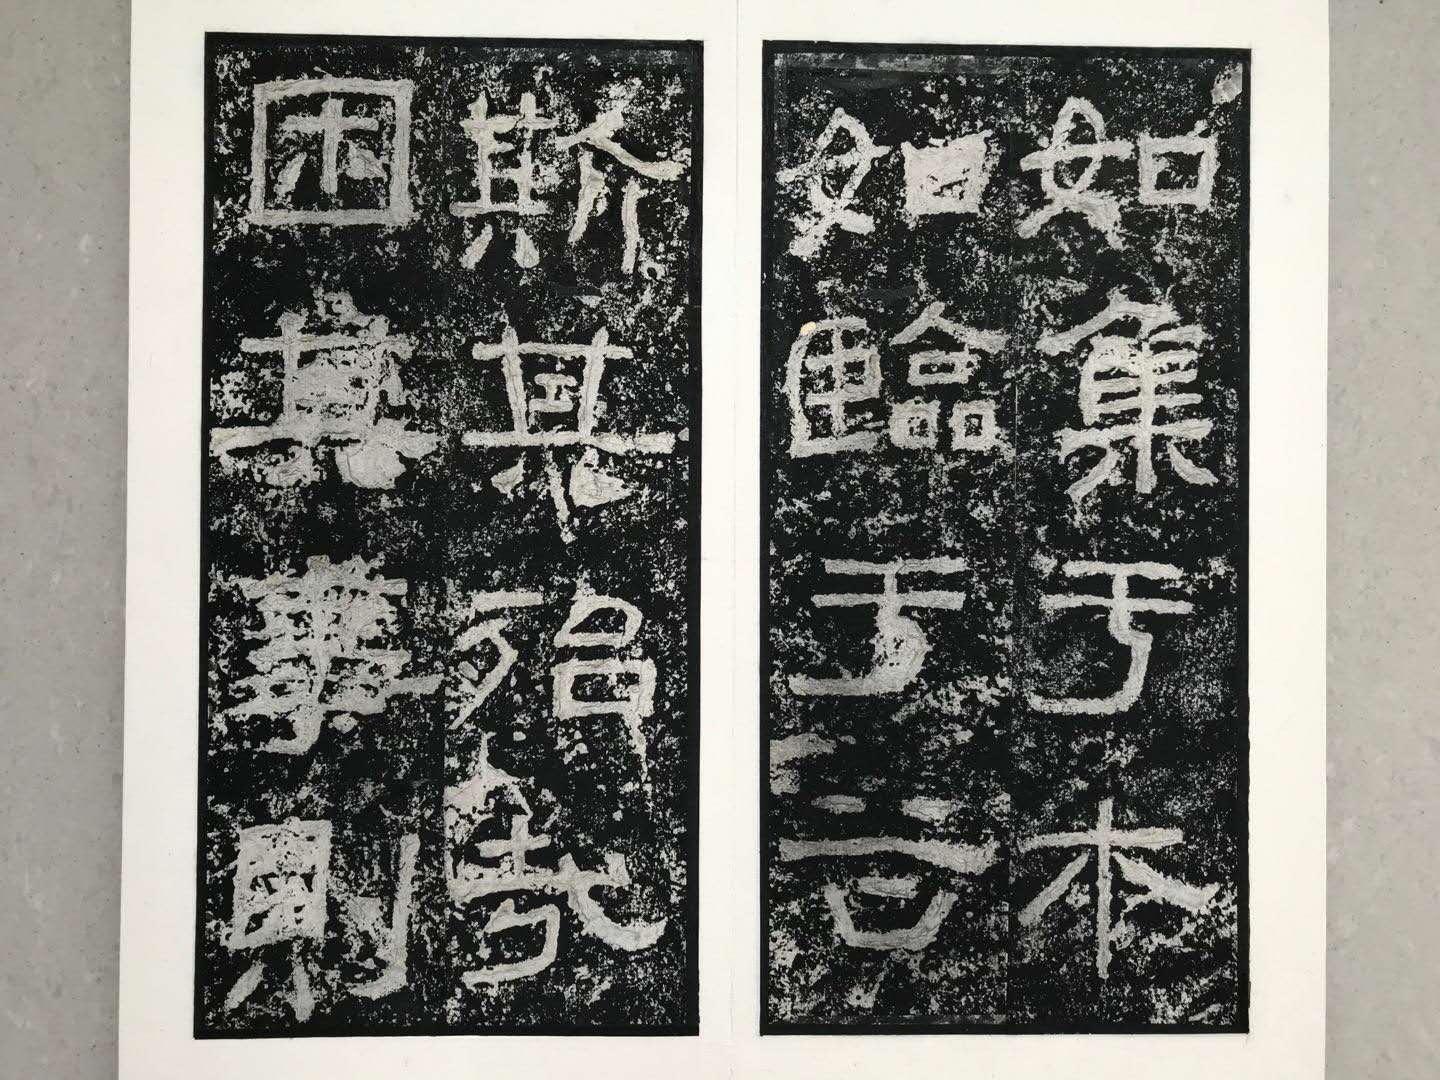 如集于木
如臨于谷
斯其殆哉
困其事則